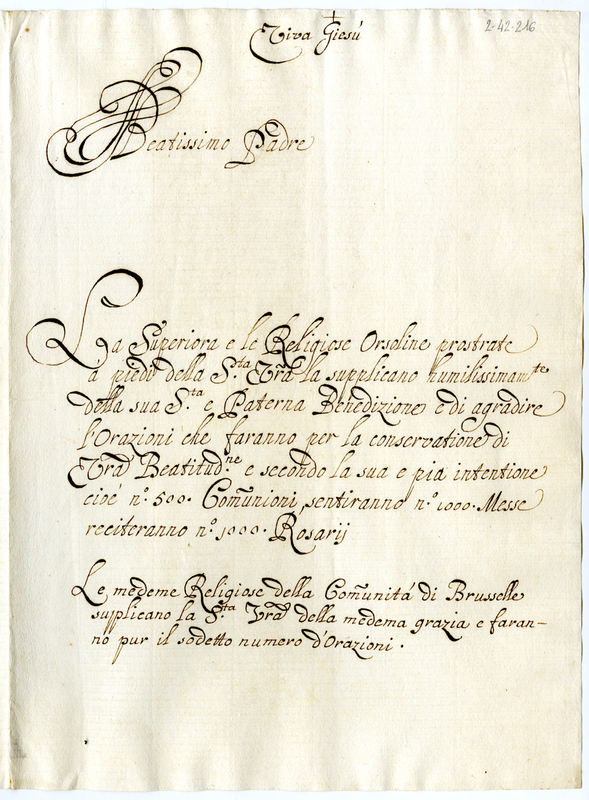 Viva Giesú
2-42-216
Beatissimo Padre
La Superiora e le Religiose Orsoline prostrate
a piedi della S.ta Vrã la supplicano humilissimam.te
della sua S.ta e Paterna Benedizione e di agradire
l'Orazioni che faranno per la conservatione di
Vrã Beatitud.ne e secondo la sua e pia intentione
cioé n.o 500. Com̃unioni, sentiranno n.o 1000. Messe
reciteranno n.o 1000. Rosarij
Le medeme Religiose della Com̃unitá di Brusselle
supplicano la S.ta Vrã della medema grazia e faran-
no pur il sodetto numero d'Orazioni.